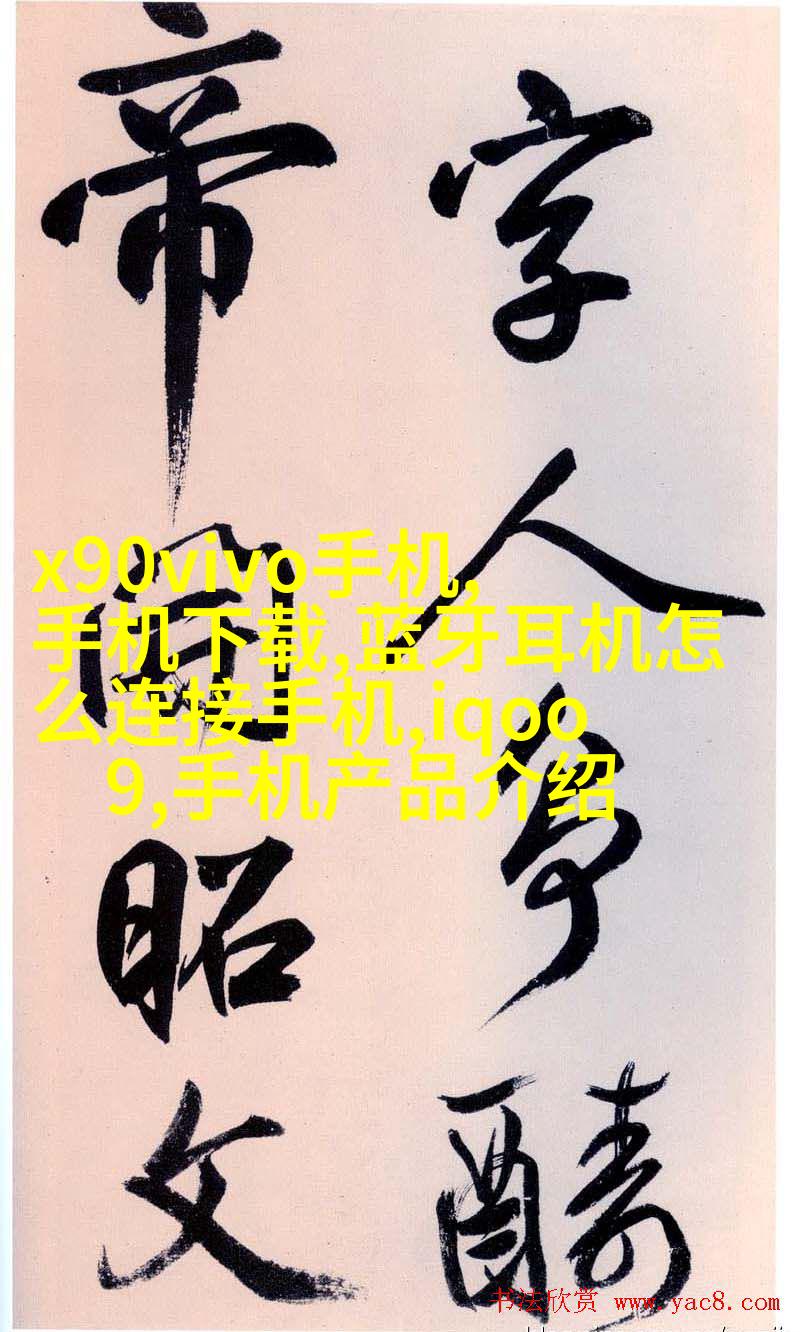 字人爭醻
帝昭文
x90vivo手机,
手机下载,蓝牙耳机怎
么连接手机,iqoo
9,手机产品介绍
书法欣赏 www.yac8.com